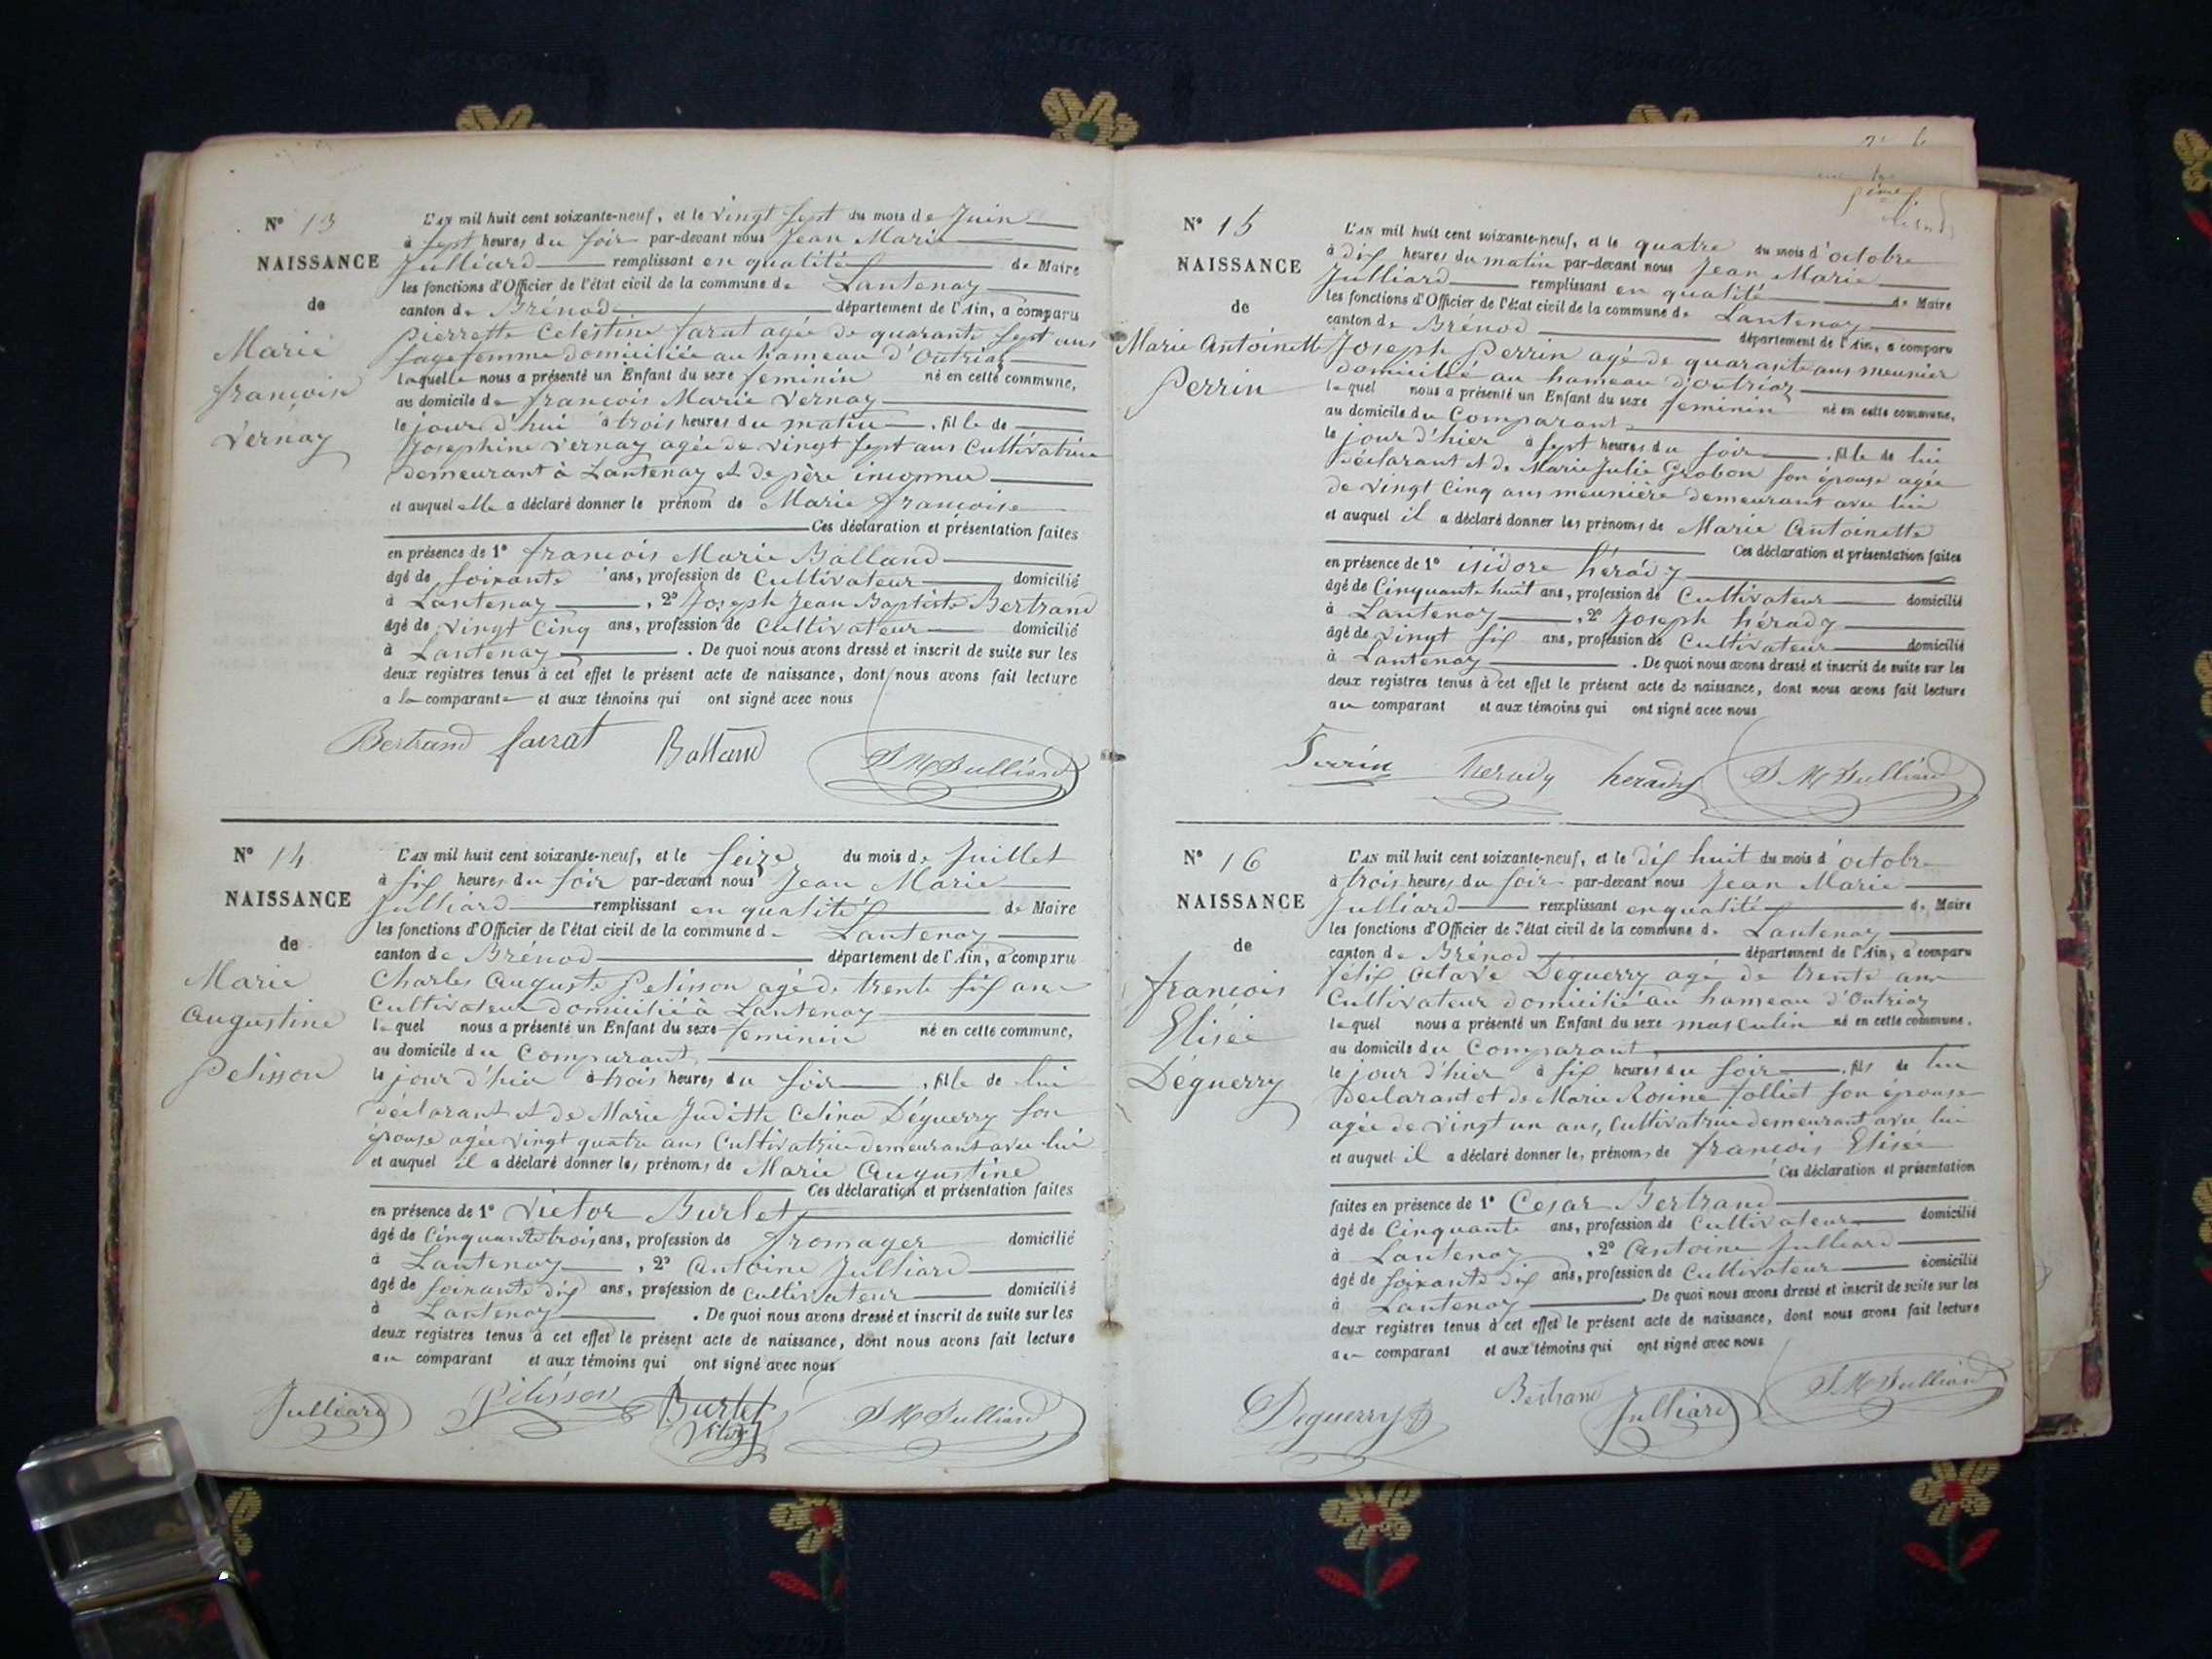 N° 13
NAISSANCE
de
Marie
françoise
Vernay
L'AN mil huit cent soixante-neuf, et le Vingt Sept du mois de Juin
à Sept heures du Soir par-devant nous Jean Marie
Julliard remplissant en qualité de Maire
les fonctions d'Officier de l'état civil de la commune de Lantenay
canton de Brénod département de l'Ain, a comparu
Pierrette Celestine Sarat agée de quarante Sept ans
Sage femme domiciliée au hameau d'Outriaz
laquelle nous a présenté un Enfant du sexe feminin né en cette commune,
au domicile de françois Marie Vernay
le jour d'hui à trois heures du matin, fille de
Josephine Vernay agée de Vingt Sept ans Cultivatrice
demeurant à Lantenay et de père inconnu
et auquel elle a déclaré donner le prénom de Marie françoise
Ces déclaration et présentation faites
en présence de 1° françois Marie Balland
âgé de Soixante ans, profession de Cultivateur domicilié
à Lantenay, 2° Joseph Jean Baptiste Bertrand
âgé de Vingt Cinq ans, profession de Cultivateur domicilié
à Lantenay. De quoi nous avons dressé et inscrit de suite sur les
deux registres tenus à cet effet le présent acte de naissance, dont nous avons fait lecture
a la comparante et aux témoins qui ont signé avec nous
Bertrand Sarrat Balland J M Julliard
N° 14
NAISSANCE
de
Marie
Augustine
Pelisson
L'AN mil huit cent soixante-neuf, et le Seize du mois de Juillet
à Six heures du Soir par-devant nous Jean Marie
Julliard remplissant en qualité de Maire
les fonctions d'Officier de l'état civil de la commune de Lantenay
canton de Brénod département de l'Ain, a comparu
Charles Auguste Pelisson agé de trente Six ans
Cultivateur domicilié à Lantenay
lequel nous a présenté un Enfant du sexe feminin né en cette commune,
au domicile du Comparant
le jour d'hui à trois heures du Soir, fille de lui
déclarant et de Marie Judith Celina Déguerry Son
épouse agée Vingt quatre ans Cultivatrice demeurant avec lui
et auquel il a déclaré donner les prénoms de Marie Augustine
Ces déclaration et présentation faites
en présence de 1° Victor Burlet
âgé de Cinquante trois ans, profession de fromager domicilié
à Lantenay, 2° Antoine Julliard
âgé de Soixante dix ans, profession de Cultivateur domicilié
à Lantenay. De quoi nous avons dressé et inscrit de suite sur les
deux registres tenus à cet effet le présent acte de naissance, dont nous avons fait lecture
au comparant et aux témoins qui ont signé avec nous
Julliard Pelisson Burlet Victor J M Julliard
N° 15
NAISSANCE
de
Marie Antoinette
Perrin
L'AN mil huit cent soixante-neuf, et le quatre du mois d'octobre
à dix heures du matin par-devant nous Jean Marie
Julliard remplissant en qualité de Maire
les fonctions d'Officier de l'état civil de la commune de Lantenay
canton de Brénod département de l'Ain, a comparu
Joseph Perrin agé de quarante ans meunier
domicilié au hameau d'outriaz
lequel nous a présenté un Enfant du sexe feminin né en cette commune,
au domicile du Comparant
le jour d'hier à Sept heures du Soir, fille de lui
déclarant et de Marie Julie Grobon Son épouse agée
de Vingt Cinq ans meunière demeurant avec lui
et auquel il a déclaré donner les prénoms de Marie Antoinette
Ces déclaration et présentation faites
en présence de 1° isidore hérády
âgé de Cinquante huit ans, profession de Cultivateur domicilié
à Lantenay, 2° Joseph hérady
âgé de Vingt Six ans, profession de Cultivateur domicilié
à Lantenay. De quoi nous avons dressé et inscrit de suite sur les
deux registres tenus à cet effet le présent acte de naissance, dont nous avons fait lecture
au comparant et aux témoins qui ont signé avec nous
Perrin herady herady J M Julliard
N° 16
NAISSANCE
de
françois
Elisée
Déguerry
L'AN mil huit cent soixante-neuf, et le dix huit du mois d'octobre
à trois heures du Soir par-devant nous Jean Marie
Julliard remplissant en qualité de Maire
les fonctions d'Officier de l'état civil de la commune de Lantenay
canton de Brénod département de l'Ain, a comparu
félix Octave Déguerry agé de trente ans
Cultivateur domicilié au hameau d'Outriaz
lequel nous a présenté un Enfant du sexe masculin né en cette commune.
au domicile du Comparant,
le jour d'hier à Six heures du Soir, fils de lui
déclarant et de Marie Rosine Jolliet Son épouse
agée de Vingt un ans, Cultivatrice demeurant avec lui
et auquel il a déclaré donner les prénoms de françois Elisée
Ces déclaration et présentation
faites en présence de 1° César Bertrand
âgé de Cinquante ans, profession de Cultivateur domicilié
à Lantenay, 2° Antoine Julliard
âgé de Soixante dix ans, profession de Cultivateur domicilié
à Lantenay. De quoi nous avons dressé et inscrit de suite sur les
deux registres tenus à cet effet le présent acte de naissance, dont nous avons fait lecture
au comparant et aux témoins qui ont signé avec nous
Deguerry Bertrand Julliard J M Julliard